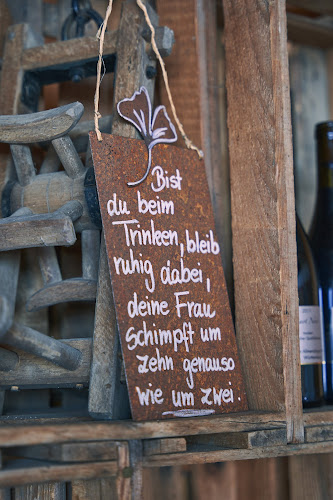 Bist
du beim
Trinken, bleib
ruhig dabei,
deine Frau
schimpft um
zehn genauso
wie um zwei.